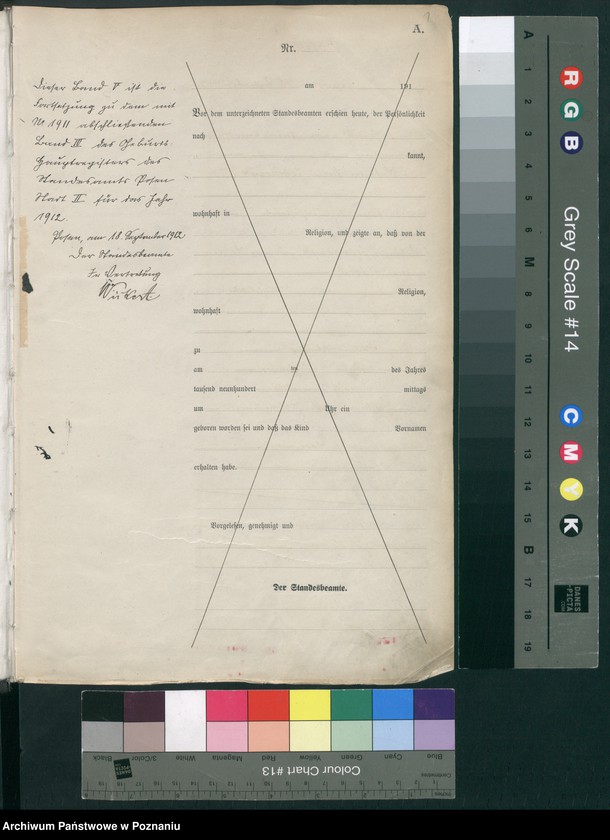 A.
Nr.
Dieser Band V ist die
Fortsetzung zu dem mit
No 1911 abschließenden
Band III des Geburts
Hauptregisters des
Standesamts Posen
Stadt II für das Jahr
1912.
Posen, am 18. September 1912
Der Standesbeamte
In Vertretung
am 191
Vor dem unterzeichneten Standesbeamten erschien heute, der Persönlichkeit
nach
kannt,
wohnhaft in
Religion, und zeigte an, daß von der
Religion,
wohnhaft
zu
am ten des Jahres
tausend neunhundert mittags
um Uhr ein
geboren worden sei und daß das Kind Vornamen
erhalten habe.
Vorgelesen, genehmigt und
Der Standesbeamte.
A 1 2 3 4 5 6 M 8 9 10 11 12 13 14 15 B 17 18 19
R G B
Grey Scale #14
C M Y K
DANES
PICTA
.COM
Black 3/Color White Magenta Red Yellow Green Cyan Blue
Colour Chart #13
Centimetres
Inches
Archiwum Państwowe w Poznaniu